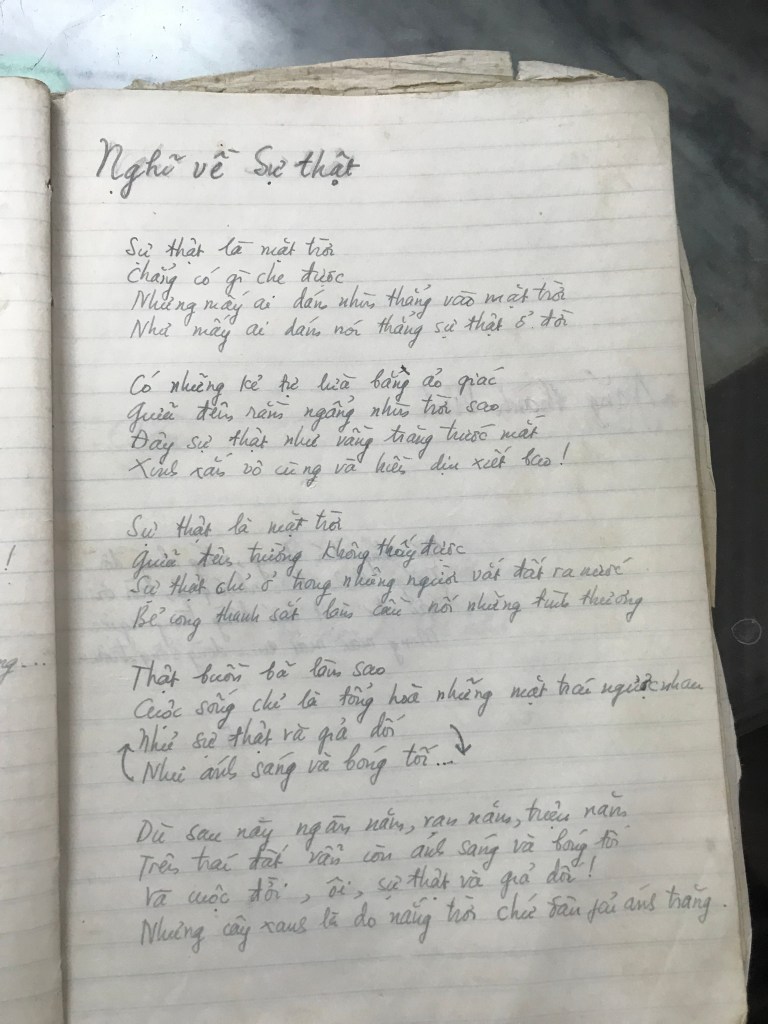 Nghĩ về Sự thật
Sự thật là mặt trời
Chẳng có gì che được
Nhưng mấy ai dám nhìn thẳng vào mặt trời
Như mấy ai dám nói thẳng sự thật ở đời
Có những kẻ tự lừa bằng ảo giác
Giữa đêm rằm ngẩng nhìn trời sao
Đây sự thật như vầng trăng trước mắt
Xinh xắn vô cùng và hiền dịu xiết bao!
Sự thật là mặt trời
Giữa đêm trường không thấy được
Sự thật chỉ ở trong những người vắt đất ra nước
Bẻ cong thanh sắt làm cầu nối những tình thương
Thật buồn bã làm sao
Cuộc sống chỉ là tổng hoà những mặt trái ngược nhau
Như sự thật và giả dối
Như ánh sáng và bóng tối...
Dù sau này ngàn năm, vạn năm, triệu năm
Trên trái đất vẫn còn ánh sáng và bóng tối
Và cuộc đời, ôi, sự thật và giả dối!
Nhưng cây xanh là do nắng trời chứ đâu phải ánh trăng.
!
ng...